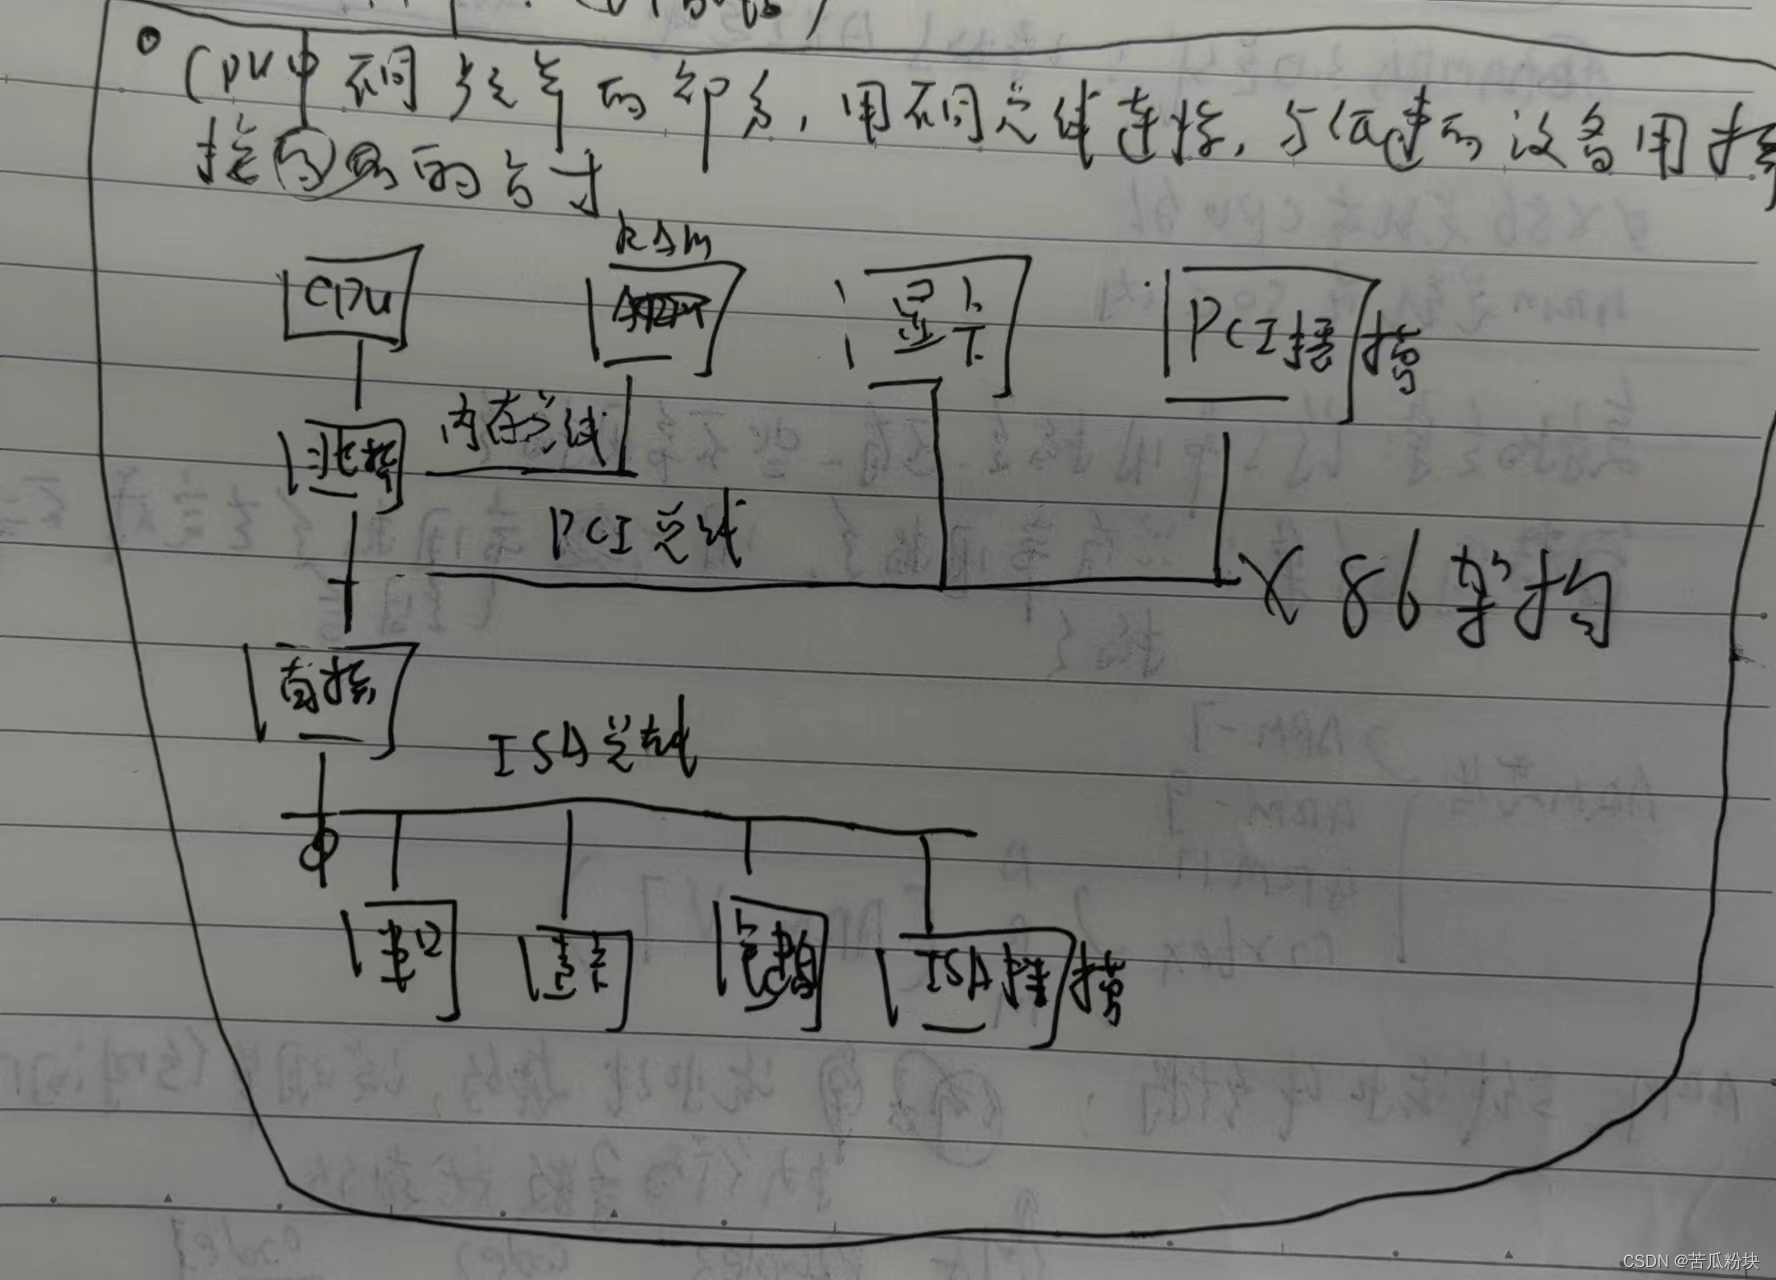 CPU中不同频率的部分,用不同总线连接,与低速的设备用
的方式
CPU
RAM
显卡
PCI插槽
北桥
内存总线
PCI总线
X86架构
南桥
ISA总线
串口
声卡
ISA插槽
CSDN @苦瓜粉块